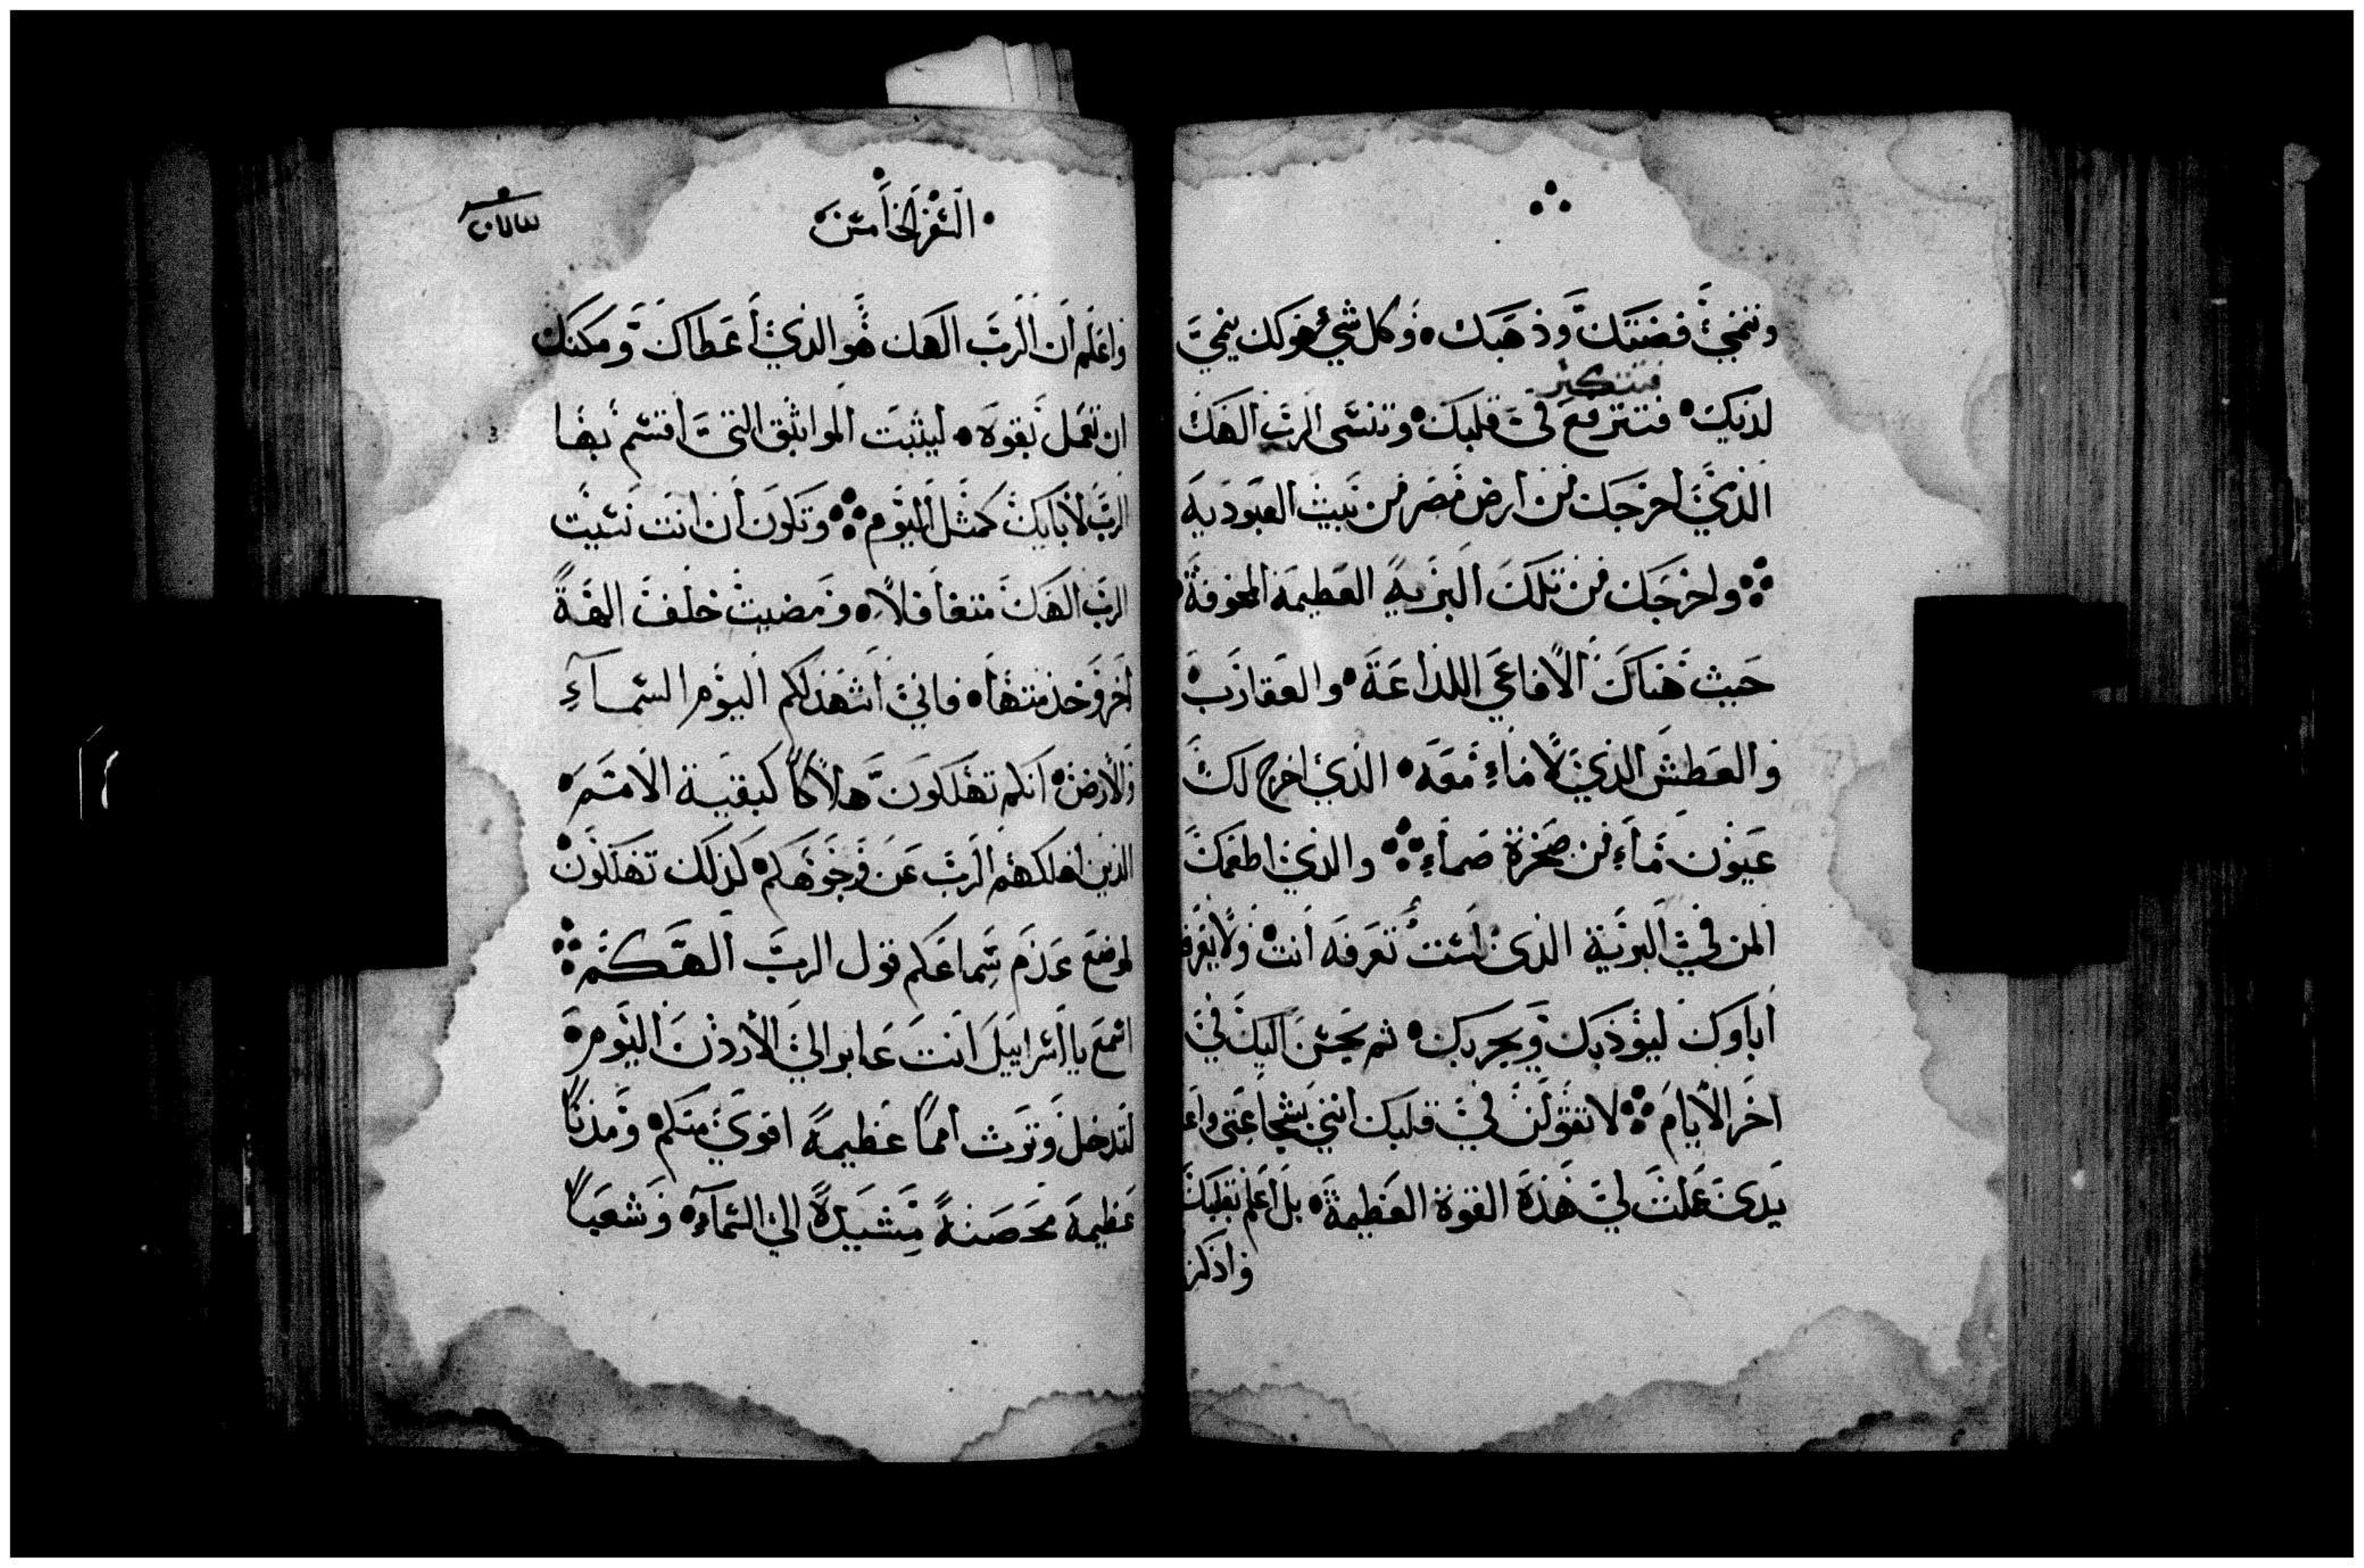 وتنمي فضتك وذهبك وكل شي هو لك ينمي
فتتكبر
لديك فتترفع في قلبك وتنسى الرب الهك
الذي اخرجك من ارض مصر من بيت العبودية
واخرجك من تلك البرية العظيمة المخوفة
حيث هناك الافاعي اللداعة والعقارب
والعطش الذي لا ماء معه الذي اخرج لك
عيون ماء من صخرة صماء والذي اطعمك
المن في البرية الذي لست تعرفه انت ولا يعرفه
اباوك ليوذبك ويجربك ثم يحسن اليك في
اخر الايام لا تقولن في قلبك انني بشجاعتي
يدي عملت لي هذه القوة العظيمة بل اعلم بقلبك
واذكر
السفر الخامس
واعلم ان الرب الهك هو الذي اعطاك ومكنك
ان تعمل بقوة ليثبت المواثيق التي اقسم بها
الرب لابايك كمثل اليوم وتكون ان انت نسيت
الرب الهك متغافلاً ومضيت خلف الهةً
اخر وخذمتها فاني اشهد لكم اليوم السماء
والارض انكم تهلكون هلاكاً كبقية الامم
الذين اهلكهم الرب عن وجوهكم كذلك تهلكون
لموضع عدم سماعكم قول الرب الهكم
اسمع يا اسراييل انت عابر الي الاردن اليوم
لتدخل وترث امماً عظيمةً اقوي منكم ومدناً
عظيمة محصنةً مشيدةً الي السماء وشعباً